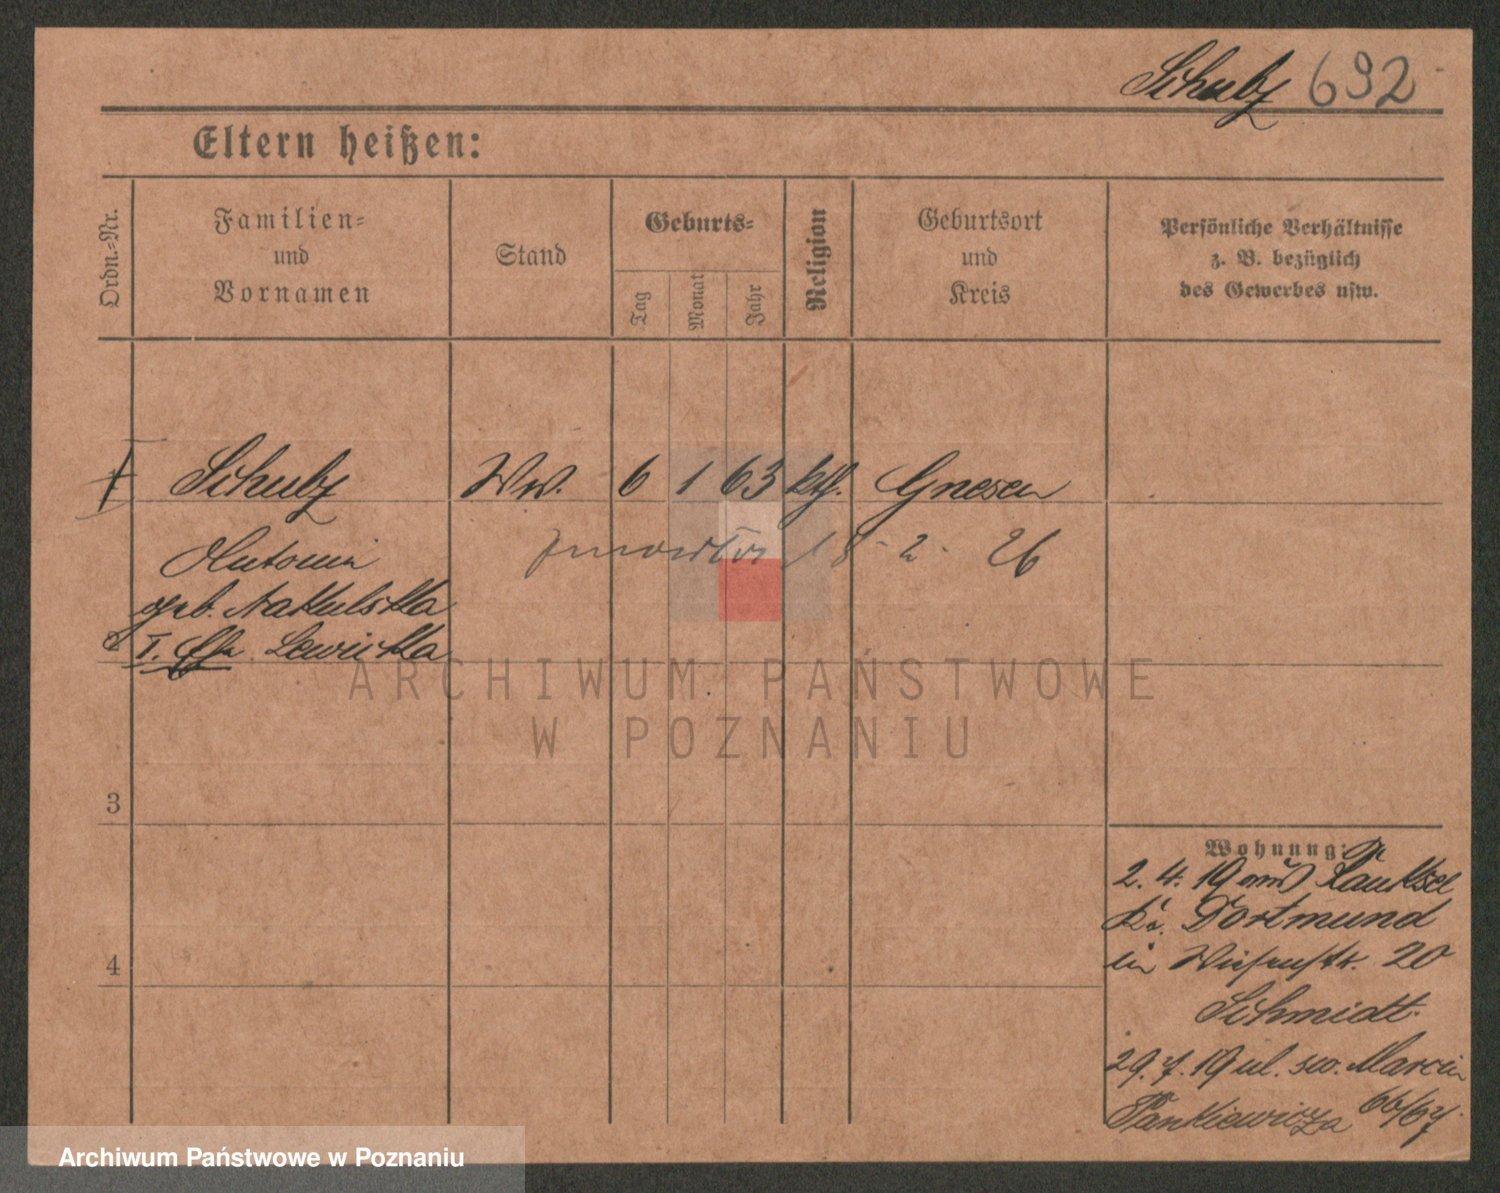 Schulz 692
Eltern heißen:
Ordn.-Nr.
Familien-
und
Vornamen
Stand
Geburts-
Tag
Monat
Jahr
Religion
Geburtsort
und
Kreis
Persönliche Verhältnisse
z. B. bezüglich
des Gewerbes usw.
1 Schulz Ww. 6 1 63 kth. Gnesen
Antonin
geb. Nakulska
2 I. Ehe Lewicka
18 - 2 - 26
3
4
Wohnung:
2. 4. 19 aus Rauxel
Kr. Dortmund
in Wiesenstr. 20
Schmidt.
29. 7. 19 ul. sw. Marcin
Pankiewicza 66/67.
ARCHIWUM PAŃSTWOWE
W POZNANIU
Archiwum Państwowe w Poznaniu